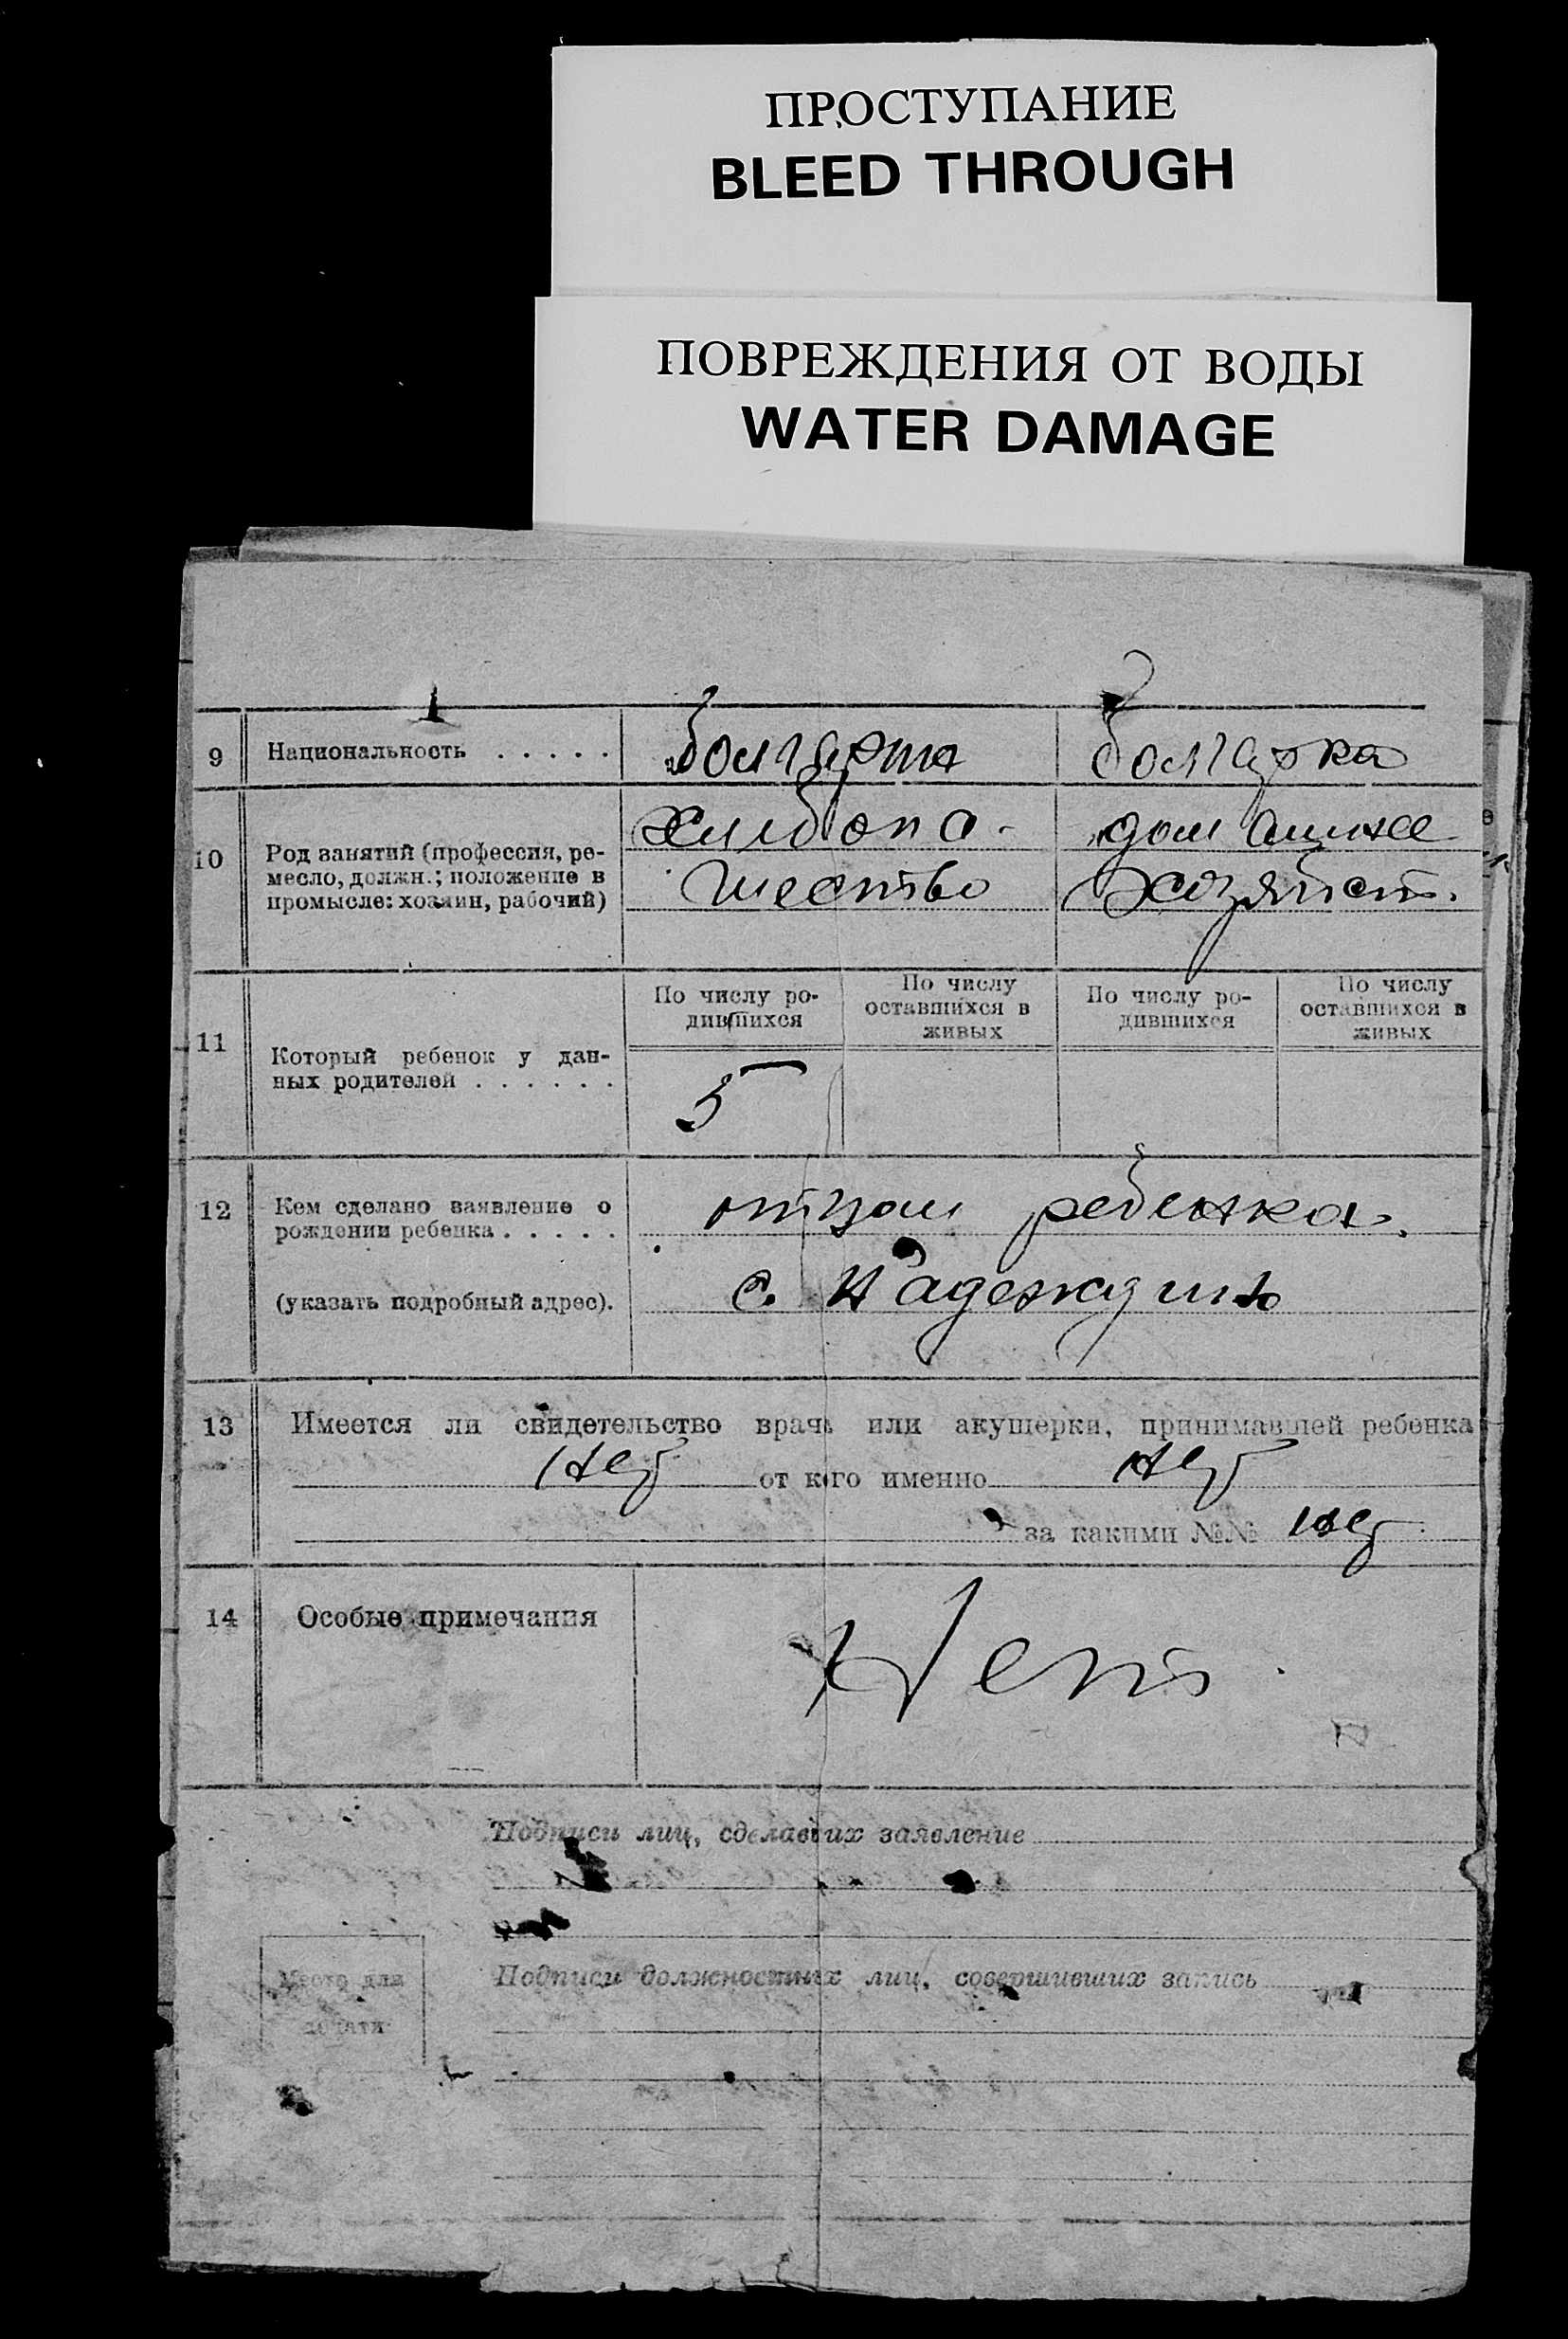 ПРОСТУПАНИЕ
BLEED THROUGH
ПОВРЕЖДЕНИЯ ОТ ВОДЫ
WATER DAMAGE
9 Национальность . . . . . болгарин болгарка
10 Род занятий (профессия, ре-
месло, должн.; положение в
промысле: хозяин, рабочий)
хлибопа- домашнее
шество хозяйст.
11 Который ребенок у дан-
ных родителей . . . . . .
По числу ро-
дившихся
По числу
оставшихся в
живых
По числу ро-
дившихся
По числу
оставшихся в
живых
5
12 Кем сделано заявление о
рождении ребенка . . . . . отцом ребенка.
(указать подробный адрес). с.
13 Имеется ли свидетельство врача или акушерки, принимавшей ребенка
нет от кого именно нет
за какими №№ нет
14 Особые примечания Нет
Подписи лиц, сделавших заявление
Место для
печати
Подписи должностных лиц, совершивших запись